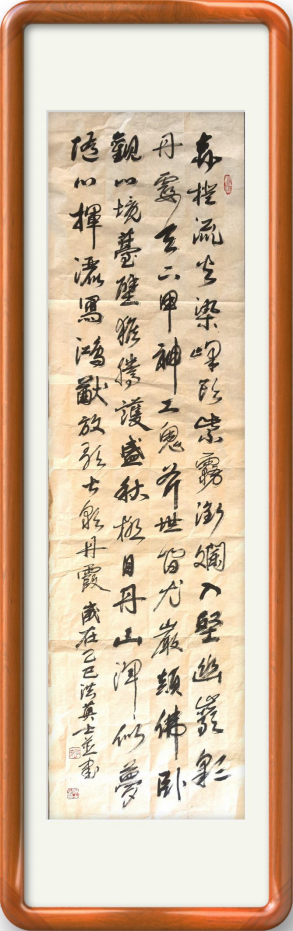 赤橙流火染峰頭紫霧斕入壑幽彩
丹霞天下甲神工鬼斧世尤巖類佛臥
觀心境壁猴騰護盛秋極目丹山渾似夢
隨心揮灑寫鴻猷放歌七彩丹霞
歲在乙巳洪英士並書